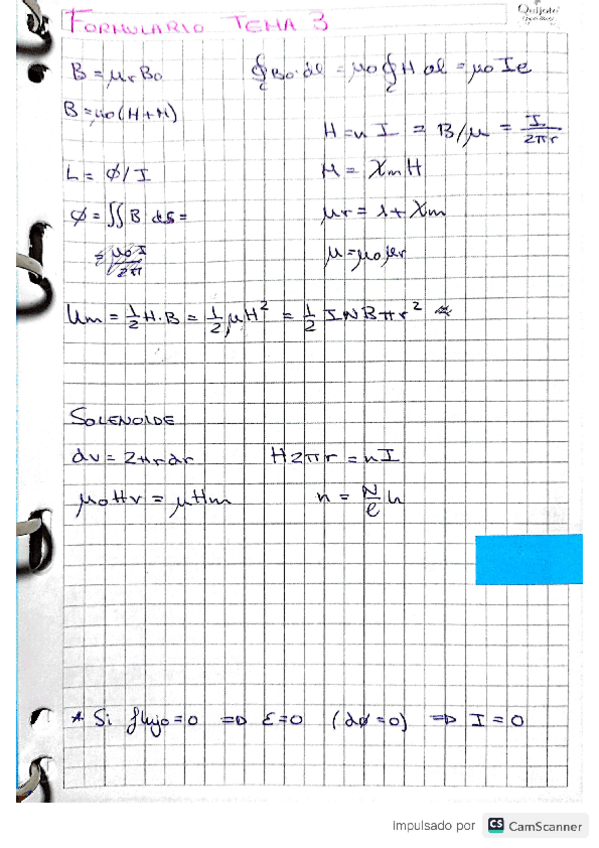 FORMULARIO TEMA 3
B = μr B₀
∮c B₀·dl = μ₀ ∮c H dl = μ₀ Ie
B = μ₀(H+M)
H = nI = B/μ = I/2πr
L = ϕ/I
M = Xm H
ϕ = ∬ B ds =
μr = 1 + Xm
μ = μ₀μr
Um = 1/2 H·B = 1/2 μH² = 1/2 INBπr²
SOLENOIDE
dv = 2πrdr
H2πr = nI
μ₀Hv = μHm
n = N/l
* Si flujo = 0 ⇒ ε = 0 (dϕ = 0) ⇒ I = 0
Impulsado por CS CamScanner